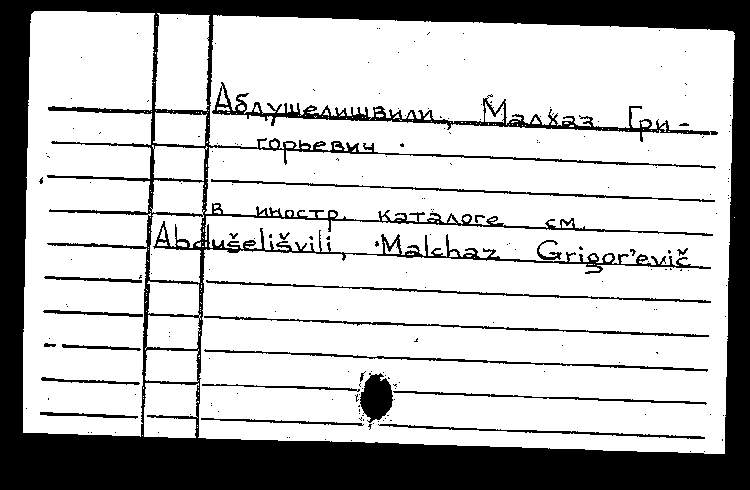 Абдушелишвили, Малхаз Гри-
горьевич.
в иностр. каталоге см.
Abdušelišvili, Malchaz Grigor'evič